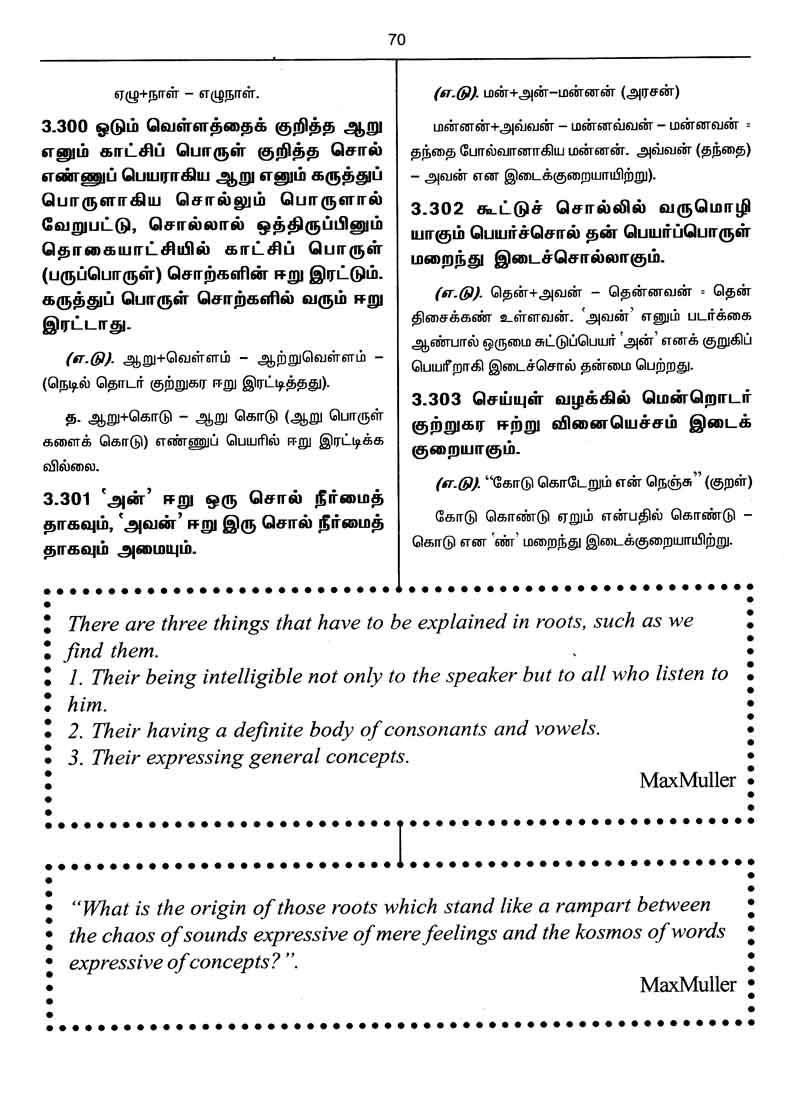 70
ஏழு+நாள் – எழுநாள்.
3.300 ஓடும் வெள்ளத்தைக் குறித்த ஆறு
எனும் காட்சிப் பொருள் குறித்த சொல்
எண்ணுப் பெயராகிய ஆறு எனும் கருத்துப்
பொருளாகிய சொல்லும் பொருளால்
வேறுபட்டு, சொல்லால் ஒத்திருப்பினும்
தொகையாட்சியில் காட்சிப் பொருள்
(பருப்பொருள்) சொற்களின் ஈறு இரட்டும்.
கருத்துப் பொருள் சொற்களில் வரும் ஈறு
இரட்டாது.
(எ.டு). ஆறு+வெள்ளம் – ஆற்றுவெள்ளம் –
(நெடில் தொடர் குற்றுகர ஈறு இரட்டித்தது).
த. ஆறு+கொடு – ஆறு கொடு (ஆறு பொருள்
களைக் கொடு) எண்ணுப் பெயரில் ஈறு இரட்டிக்க
வில்லை.
3.301 ‘அன்’ ஈறு ஒரு சொல் நீர்மைத்
தாகவும், ‘அவன்’ ஈறு இரு சொல் நீர்மைத்
தாகவும் அமையும்.
(எ.டு). மன்+அன்–மன்னன் (அரசன்)
மன்னன்+அவ்வன் – மன்னவ்வன் – மன்னவன் =
தந்தை போல்வானாகிய மன்னன். அவ்வன் (தந்தை)
– அவன் என இடைக்குறையாயிற்று).
3.302 கூட்டுச் சொல்லில் வருமொழி
யாகும் பெயர்ச்சொல் தன் பெயர்ப்பொருள்
மறைந்து இடைச்சொல்லாகும்.
(எ.டு). தென்+அவன் – தென்னவன் = தென்
திசைக்கண் உள்ளவன். ‘அவன்’ எனும் படர்க்கை
ஆண்பால் ஒருமை சுட்டுப்பெயர் ‘அன்’ எனக் குறுகிப்
பெயரீறாகி இடைச்சொல் தன்மை பெற்றது.
3.303 செய்யுள் வழக்கில் மென்றொடர்
குற்றுகர ஈற்று வினையெச்சம் இடைக்
குறையாகும்.
(எ.டு). “கோடு கொடேறும் என் நெஞ்சு” (குறள்)
கோடு கொண்டு ஏறும் என்பதில் கொண்டு –
கொடு என ‘ண்’ மறைந்து இடைக்குறையாயிற்று.
There are three things that have to be explained in roots, such as we
find them.
1. Their being intelligible not only to the speaker but to all who listen to
him.
2. Their having a definite body of consonants and vowels.
3. Their expressing general concepts.
MaxMuller
“What is the origin of those roots which stand like a rampart between
the chaos of sounds expressive of mere feelings and the kosmos of words
expressive of concepts?”.
MaxMuller